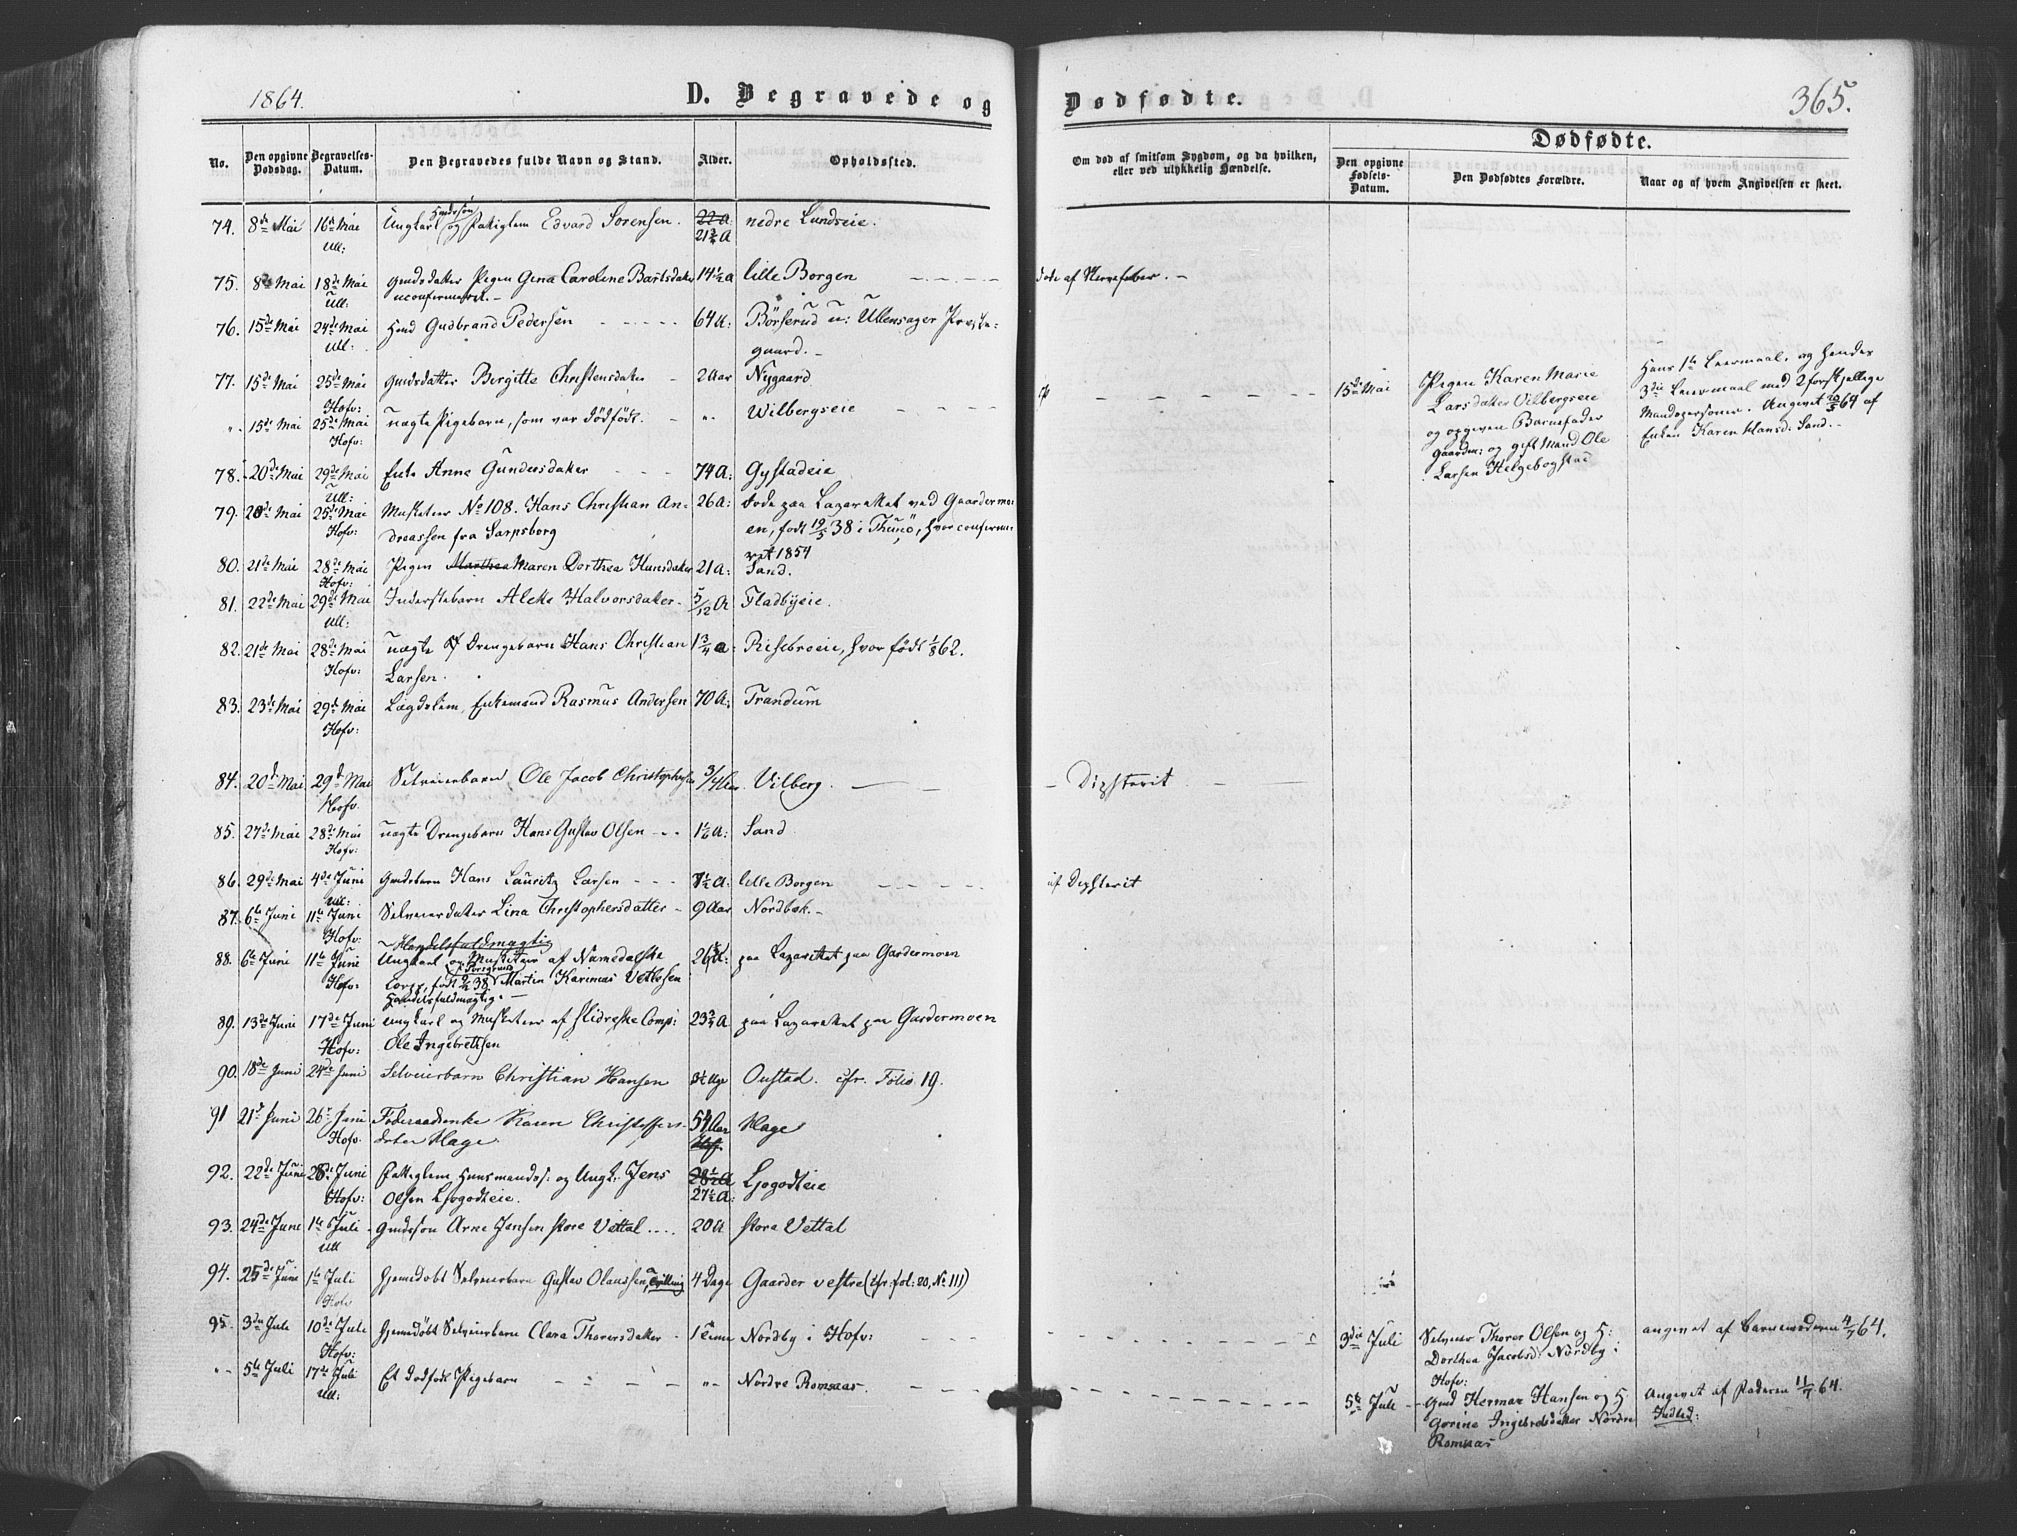 1864.
D. Begravede og
Dødfødte.
365.
Dødfødte.
No.
Den opgivne Dødsdag.
Begravelses-Datum.
Den Begravedes fulde Navn og Stand.
Alder.
Opholdssted.
Om død af smitsom Sygdom, og da hvilken,
eller ved ulykkelig Hændelse.
Den opgivne
Fødsels-
Datum.
Den Dødfødtes Forældre.
Naar og af hvem Angivelsen er skeet.
74. 8de Mai 16de Mai Ungkarl og Edvard Sørensen. 22 A: nedre Lundseie.
Ull: 21¾ A
75. 8de Mai 18de Mai Gmdsdatter Pigen Gina Caroline Baatsdater 14½ A lille Borgen døde af Nervefeber. -
Ull: uconfirmeret. -
76. 15de Mai 24de Mai Gmd Gudbrand Pedersen 64 A: Børserud u: Ullensager Præste-
Ull: gaard. -
77. 15de Mai 25de Mai Gmdsdatter Birgitte Christensdater - 2 Aar Nygaard
Hofv:
" 15de Mai 25de Mai uægte Pigebarn, som var dødfødt. - " Wilbergseie
Hofv:
15de Mai Pigen Karen Marie
Larsdatter Vilbergseie
og opgiven Barnefader
Gaardm: og gift Mand Ole
Larsen Helgebogstad
Hans 1ste Leiermaal, og hendes
3die Leiermaal med 2 forskjellige
Mandspersoner. Angivet 64 af
Enken Karen Hansd: Sand. -
78. 20de Mai 29de Mai Enke Anne Gundersdater 74 A: Gystadeie
Ull:
79. 20de Mai 25de Mai Musketeer No 108. Hans Christian An- 26 A: døde paa Lazarettet ved Gardermo-
Hofv: dreassen fra Sarpsborg en, født 19/5 38 i Thunø, hvor confirme-
ret 1854
80. 21de Mai 28de Mai Pigen Marthea Maren Dorthea Hansdater 21 A: Sand.
Hofv:
81. 22de Mai 29de Mai Inderstebarn Alette Halvorsdater - 5/12 A Fladbyeie.
Ull:
82. 21de Mai 28de Mai uægte Drengebarn Hans Christian 1¾ A: Risebroeie, hvor født 1/8 62.
Hofv: Larsen.
83. 23de Mai 29de Mai Lægdslem, Enkemand Rasmus Andersen 70 A: Trandum
Hofv:
84. 20de Mai 29de Mai Selveierbarn, Ole Jacob Christophersen 3/4 Aar Vilberg. - Dipsterit
Hofv.
85. 27de Mai 28de Mai uægte Drengebarn Hans Gustav Olsen 1½ A: Sand.
Hofv:
86. 29de Mai 4de Juni Gmdsbarn Hans Lauritz Larsen 1½ A: lille Borgen af Dipsterit
Ull:
87. 6te Juni 11te Juni Selveierdater Lina Christophersdatter - 9 Aar Nordbæk. -
Hofv: Handelsfuldmægtig
88. 6te Juni 11te Juni Ungkarl og Musketeer af Namedalske 26 A: paa Lazarettet paa Gardermoen
Hofv: Corps, født 38 Martin Karinius Vetlesen
Handelsfuldmægtig. -
89. 13de Juni 17de Juni Ungkarl og Musketeer af Slidreske Comp: 23¾ A paa Lazarettet paa Gardermoen
Hofv: Ole Ingebretsen
90. 18de Juni 24de Juni Selveierbarn Christian Hansen Uge Onstad. cfr. Folio 19.
91 21de Juni 26de Juni Føderaadsenke Karen Christoffers- 54 Aar Hage
Hofv. dater Hage.
92. 22de Juni 28de Juni Fattiglem Huusmandss: og Ungk: Jens 28½ A Ljogodteie
Hofv: Olsen Ljogodteie. 27½ A:
93. 24de Juni 1te Juli Gmdssøn Arne Jensen store Vettal 20 A store Vettal
Ull
94. 25de Juni 1te Juli Hjemedøbt Selveierbarn Gustav Olaussen, Tvilling 4 Dage Gaarder vestre (cfr. fol: 20, No. 111)
Hofv
95. 3die Juli 10de Juli Hjemedøbt Selveierbarn Clara Thorersdater - 1 Time Nordby i Hofv:
Hofv:
3die Juli Selveier Thorer Olsen og H:
Dorthea Jacobsd: Nordby i
Hofv:
angivet af Barnemoderen 4/7 64.
" 5te Juli 17de Juli Et dødfødt Pigebarn " Nordre Romsaas.
Ull:
5te Juli Gmd Herman Hansen og H
Gorine Ingebretsdatter Nordre
Romsaas
Angivet af Faderen 11/7 64.
Indled: